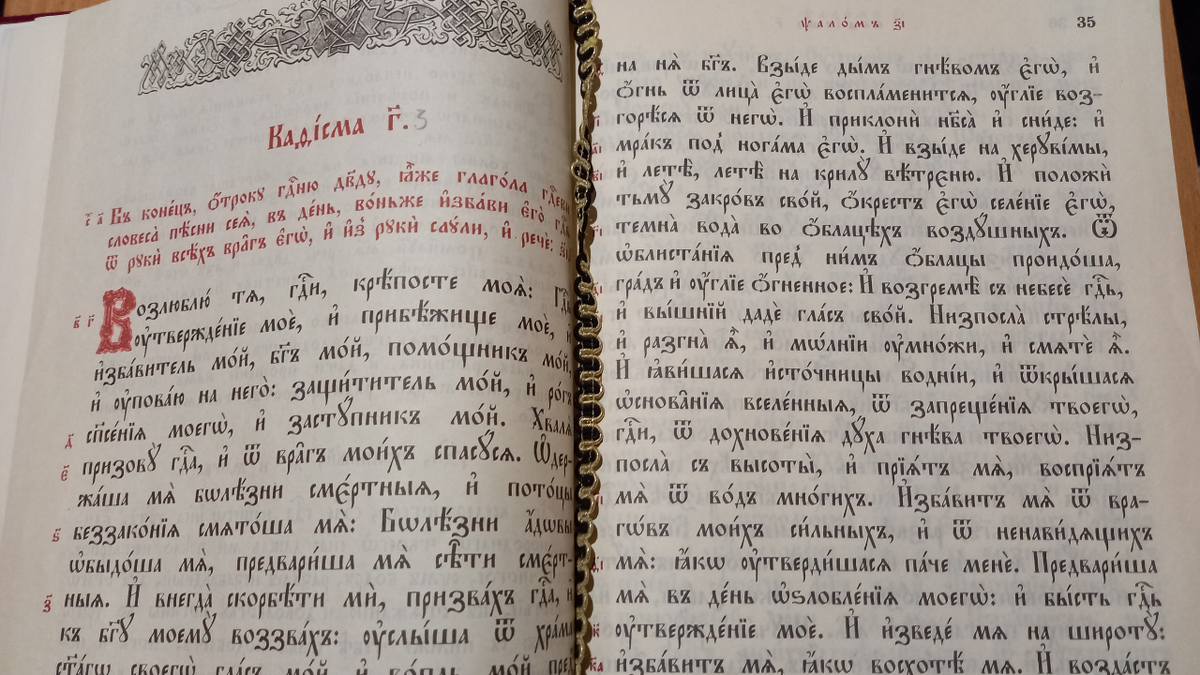 Каѳі́сма г҃. 3
с҃ а҃ Въ коне́цъ, ѻ҆́троку гдⷭ҇ню дв҃ду, ꙗ҆̀же глаго́ла гдⷭ҇еви
словеса̀ пѣ́сни сеѧ̀, въ де́нь, во́ньже и҆зба́ви є҆го̀ гдⷭ҇ь
ѿ рукѝ всѣ́хъ вра̑гъ є҆гѡ̀, и҆ и҆з̾ рукѝ саꙋ́ли, и҆ речѐ:
в҃ г҃ Возлюблю́ тѧ, гдⷭ҇и, крѣ́посте моѧ̀: гдⷭ҇ь
ᲂу҆твержде́нїе моѐ, и҆ прибѣ́жище моѐ, и҆
и҆зба́витель мо́й, бг҃ъ мо́й, помо́щникъ мо́й,
и҆ ᲂу҆пова́ю на него̀: защи́титель мо́й, и҆ ро́гъ
сп҃се́нїѧ моегѡ̀, и҆ застꙋ́пникъ мо́й. Хвалѧ̀
д҃
є҃ призовꙋ̀ гдⷭ҇а, и҆ ѿ вра̑гъ мои́хъ спасꙋ́сѧ. Ѡ҆дер-
жа́ша мѧ̀ бѡлѣ́зни сме́ртныѧ, и҆ пото́цы
ѕ҃ беззако́нїѧ смѧто́ша мѧ̀: Бѡлѣ́зни а҆́дѡвы
ѡ҆быдо́ша мѧ̀, предвари́ша мѧ̀ сѣ̑ти сме́рт-
з҃ ныѧ. И҆ внегда̀ скорбѣ́ти мѝ, призва́хъ гдⷭ҇а, и҆
къ бг҃ꙋ моемꙋ̀ воззва́хъ: ᲂу҆слы́ша ѿ хра́ма
ст҃а́гѡ своегѡ̀ гла́съ мо́й, и҆ во́пль мо́й пред̾
ѱало́мъ з҃і 35
на нѧ̀ бг҃ъ. Взы́де ды́мъ гнѣ́вомъ є҆гѡ̀, и҆
ѻ҆́гнь ѿ лица̀ є҆гѡ̀ воспла́менитсѧ, ᲂу҆́глїе воз-
горѣ́сѧ ѿ негѡ̀. И҆ приклонѝ нб҃са̀ и҆ сни́де: и҆
мра́къ под̾ нога́ма є҆гѡ̀. И҆ взы́де на херꙋві́мы,
и҆ летѣ̀, летѣ̀ на крилꙋ̀ вѣ́трєню. И҆ положѝ
тьмꙋ̀ закро́въ сво́й, ѻ҆́крестъ є҆гѡ̀ селе́нїе є҆гѡ̀,
темна̀ вода̀ во ѻ҆́блацѣхъ воздꙋ́шныхъ. Ѿ
ѡ҆блиста́нїѧ пред̾ ни́мъ ѻ҆́блацы проидо́ша,
гра́дъ и҆ ᲂу҆́глїе ѻ҆́гненное: И҆ возгремѣ̀ съ небесѐ гдⷭ҇ь,
и҆ вы́шнїй дадѐ гла́съ сво́й. Низпосла̀ стрѣ́лы,
и҆ разгна̀ ѧ҆̀, и҆ мѡ́лнїи ᲂу҆мно́жи, и҆ смѧтѐ ѧ҆̀.
И҆ ꙗ҆ви́шасѧ и҆сто́чницы водні́и, и҆ ѿкры́шасѧ
ѡ҆снова̑нїѧ вселе́нныѧ, ѿ запреще́нїѧ твоегѡ̀,
гдⷭ҇и, ѿ дохнове́нїѧ дꙋ́ха гнѣ́ва твоегѡ̀. Низ-
посла̀ съ высоты̀, и҆ прїѧ́тъ мѧ̀, воспрїѧ́тъ
мѧ̀ ѿ во́дъ мно́гихъ. И҆зба́витъ мѧ̀ ѿ вра-
гѡ́въ мои́хъ си́льныхъ, и҆ ѿ ненави́дѧщихъ
мѧ̀: ꙗ҆́кѡ ᲂу҆тверди́шасѧ па́че менѐ. Предвари́ша
мѧ̀ въ де́нь ѡ҆ѕлобле́нїѧ моегѡ̀: и҆ бы́сть гдⷭ҇ь
к҃ ᲂу҆твержде́нїе моѐ. И҆ и҆зведе́ мѧ на широтꙋ̀:
к҃а и҆зба́витъ мѧ̀, ꙗ҆́кѡ восхотѣ́ мѧ. И҆ возда́стъ